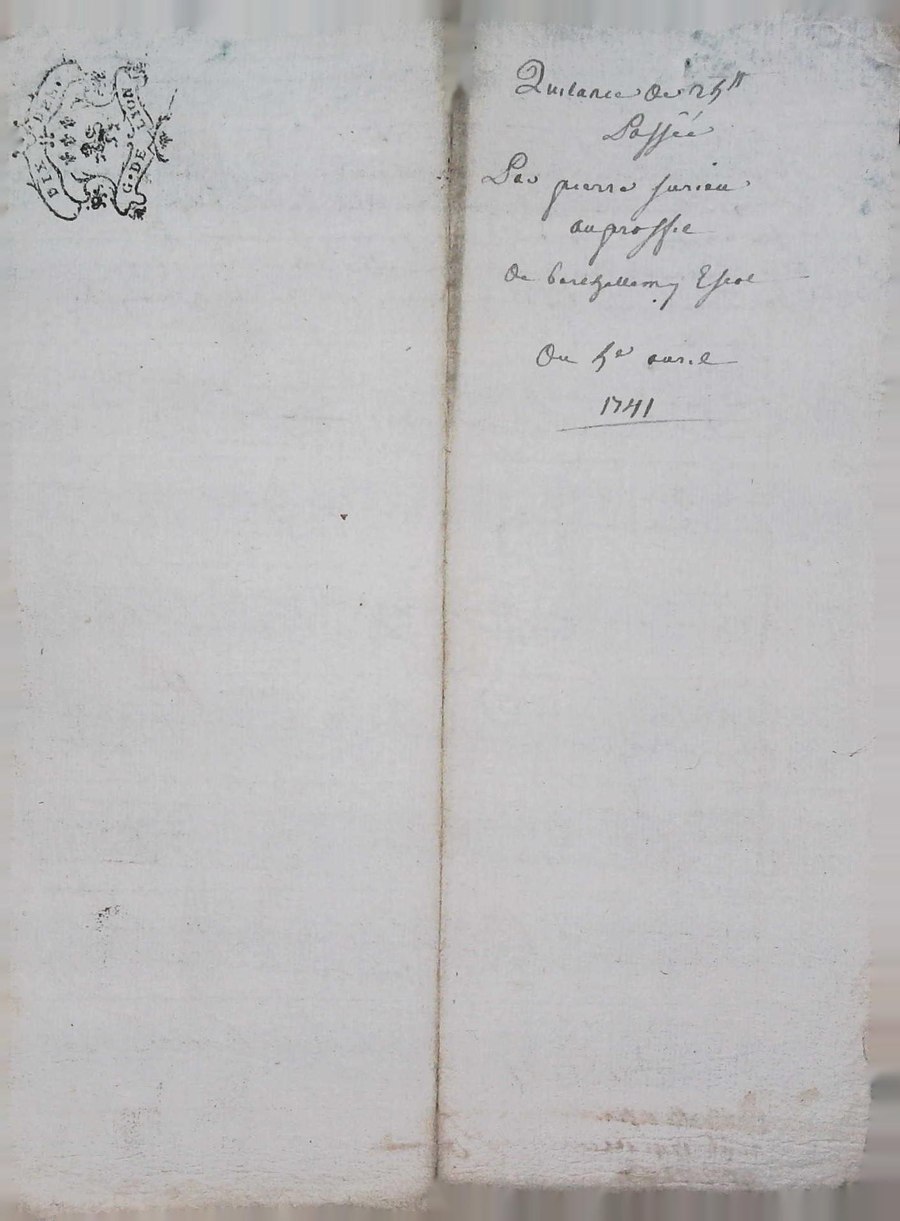 DIX DEN.
G. DE LION
Quitance de 25ᵗᵗ
Passée
Par pierre surieu
au proffit
de barthellemy Escot
Du 5ᵉ avril
1741